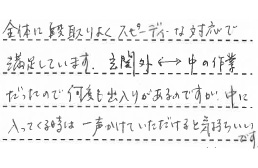 全体に段取りよくスピーディーな対応で
満足しています。玄関外⟷中の作業
だったので何度も出入りがあるのですが、中に
入ってくる時は一声かけていただけると気持ちいい
です